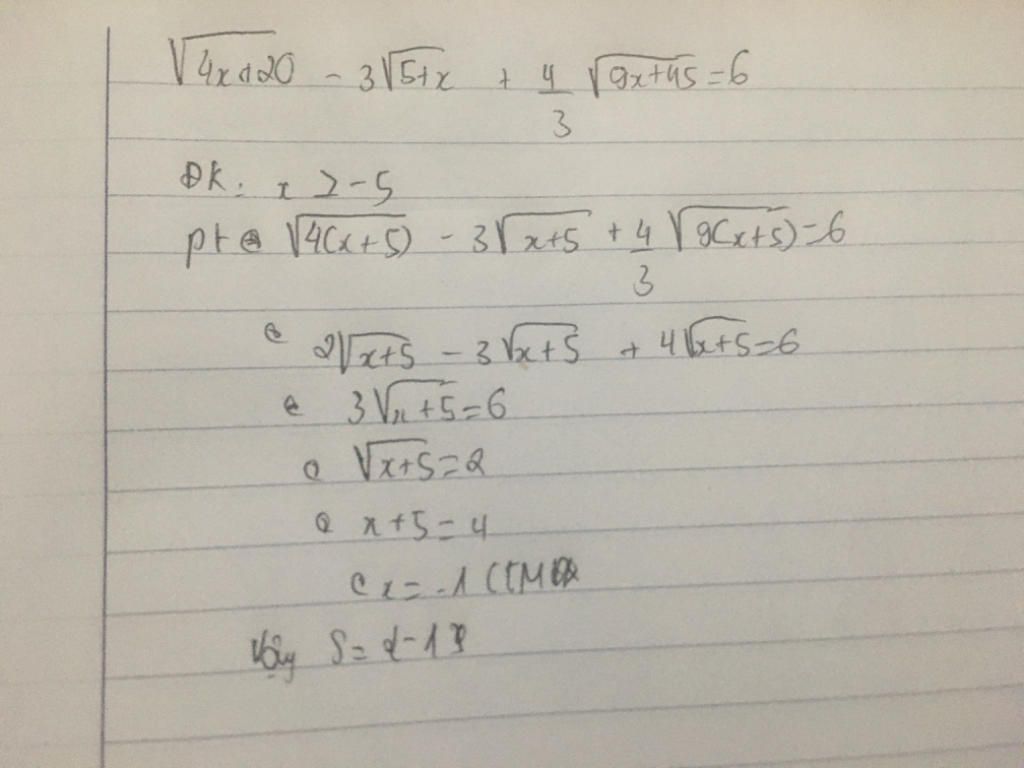 √(4x+20) - 3√(5+x) + 4/3 √(9x+45) = 6
ĐK: x ≥ -5
pt ⇔ √(4(x+5)) - 3√(x+5) + 4/3 √(9(x+5)) = 6
⇔ 2√(x+5) - 3√(x+5) + 4√(x+5) = 6
⇔ 3√(x+5) = 6
⇔ √(x+5) = 2
⇔ x+5 = 4
⇔ x = -1 (TMĐK)
Vậy S = {-1}